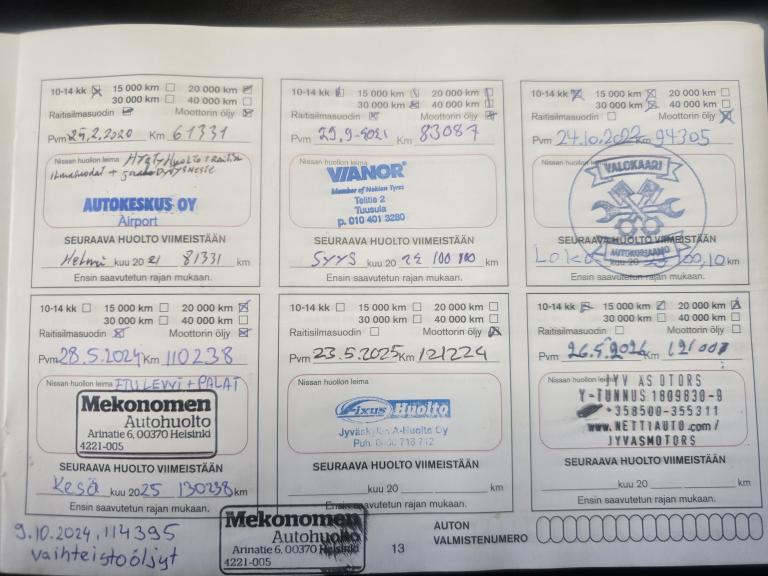 10-14 kk 15 000 km 20 000 km
30 000 km 40 000 km
Raitisilmasuodin Moottorin öljy
Pvm 25.2.2020 Km 61331
Nissan huollon leima
AUTOKESKUS OY
Airport
SEURAAVA HUOLTO VIIMEISTÄÄN
Helmi kuu 20 21 81331 km
Ensin saavutetun rajan mukaan.
10-14 kk 15 000 km 20 000 km
30 000 km 40 000 km
Raitisilmasuodin Moottorin öljy
Pvm 29.9-2021 Km 83087
Nissan huollon leima
VIANOR
Member of Nokian Tyres
Telitie 2
Tuusula
p. 010 401 3280
SEURAAVA HUOLTO VIIMEISTÄÄN
SYYS kuu 20 km
Ensin saavutetun rajan mukaan.
10-14 kk 15 000 km 20 000 km
30 000 km 40 000 km
Raitisilmasuodin Moottorin öljy
Pvm 24.10.2022 Km 94305
Nissan huollon leima
VALOKAARI
AUTOKORJAAMO
SEURAAVA HUOLTO VIIMEISTÄÄN
Loka kuu 20 km
Ensin saavutetun rajan mukaan.
10-14 kk 15 000 km 20 000 km
30 000 km 40 000 km
Raitisilmasuodin Moottorin öljy
Pvm 28.5.2024 Km 110238
Nissan huollon leima ETULEVYT + PALAT
Mekonomen
Autohuolto
Arinatie 6, 00370 Helsinki
4221-005
SEURAAVA HUOLTO VIIMEISTÄÄN
Kesä kuu 2025 130238 km
Ensin saavutetun rajan mukaan.
10-14 kk 15 000 km 20 000 km
30 000 km 40 000 km
Raitisilmasuodin Moottorin öljy
Pvm 23.5.2025 Km 121224
Nissan huollon leima
Fixus Huolto
A-Huolto Oy
SEURAAVA HUOLTO VIIMEISTÄÄN
kuu 20 km
Ensin saavutetun rajan mukaan.
10-14 kk 15 000 km 20 000 km
30 000 km 40 000 km
Raitisilmasuodin Moottorin öljy
Pvm Km
JYV AS OTORS
Y-TUNNUS 1809830-8
+358500-355311
www.NETTIAUTO.com/
JYVASMOTORS
SEURAAVA HUOLTO VIIMEISTÄÄN
kuu 20 km
Ensin saavutetun rajan mukaan.
9.10.2024, 114395
vaihteistoöljyt
Mekonomen
Autohuolto
Arinatie 6, 00370 Helsinki
4221-005
13
AUTON
VALMISTENUMERO